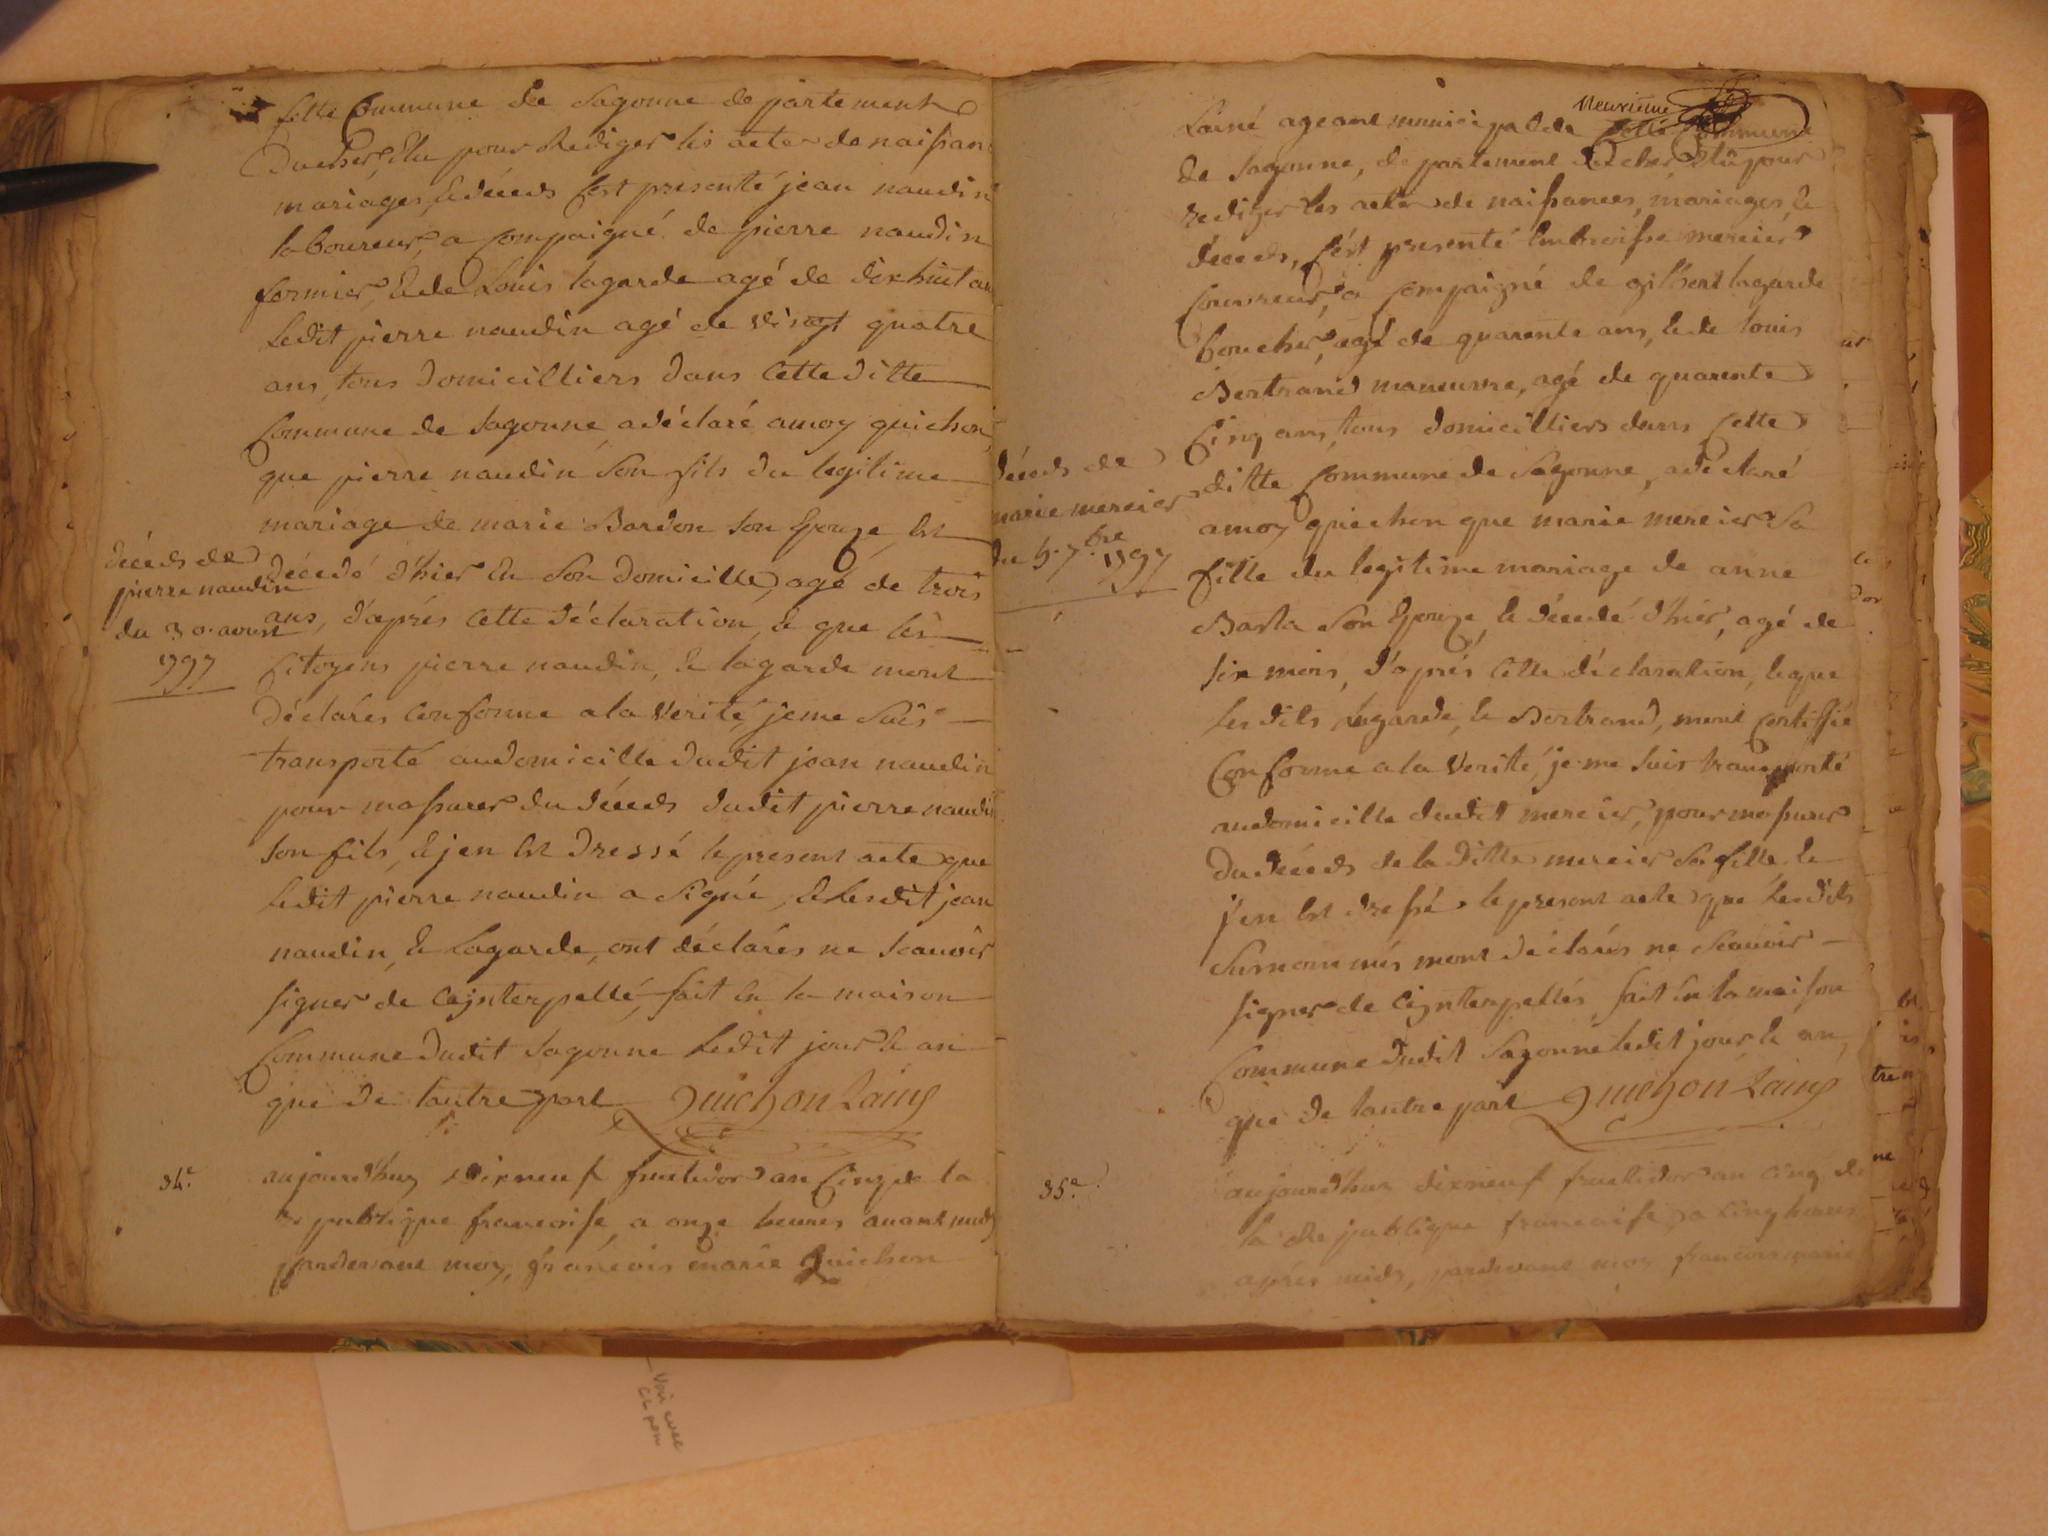 cette Commune de Sagonne de partement
Ducher, Elu pour Rediger les actes de naissan
mariages, Edéceds c'est presenté jean naudin
laboureur, a Compaigné de pierre naudin
formier, Ede Louis lagarde agé de dixhuit an
Ledit pierre naudin agé de vingt quatre
ans, tous Domicilliers dans Cette ditte
Commune de Sagonne, adéclaré amoy quichon
que pierre naudin Son fils du legitime
mariage de marie Bardon Son Epouze, Est
décedé d'hier En Son Domicille, agé de trois
ans, d'après Cette déclaration, E que les
Citoyens pierre naudin, E lagarde mont
Déclarés Conforme a la Verité, jeme Suis
transporté audomicille dudit jean naudin
pour massurer du déceds dudit pierre naudin
Son fils, E jen Est Dressé le present acte que
Ledit pierre naudin a Signé, E Lesdit jean
naudin, E Lagarde, ont déclarés ne Scavoir
Signer de Ceinterpellé, fait En la maison
Commune dudit Sagonne Ledit jour E an
que de lautre part Quichon Lainé
décéds de
pierre naudin
du 30. aoust
1797
34.e aujourdhuy dixneuf fructidor an Cinq de la
Republique francoise, a onze heures avant midy
pardevant moy, françois marie Quichon
neuvieme
Lainé ageant municipal de Cette Commune
de Sagonne, de partement du cher, Elû pour
rediger les actes de naissances, mariages, E
déceds, C'est presenté Embroisse mercier
Couvreur, a Compaigné de gilbert lagarde
boucher, agé de quarente ans, Ede Louis
Bertrand maneuvre, agé de quarente
Cinq ans, tous domicilliers dans Cette
ditte Commune de Sagonne, adéclaré
amoy quichon que marie mercier Sa
fille du legitime mariage de anne
Barla Son Epouze, E décedé d'hier, agé de
Six mois, d'après Cette déclaration, E que
Lesdits Lagarde, E Bertrand, mont Certiffié
Conforme a la Verité, je me Suis transporté
audomicille dudit mercier, pour massurer
du déceds de la ditte mercier Sa fille, E
j'en Est dressé le present acte que Lesdits
Surnommés mont déclarés ne Scavoir
Signer de Ceinterpellés, fait En la maison
Commune dudit Sagonne Ledit jour E an
que de lautre part Quichon Lainé
déceds de
marie mercier
du 5. 7.bre
1797
35.e aujourdhuy dixneuf fructidor an cinq de
la Republique francaise, a Cinq heures
après midy, pardevant moy francois marie